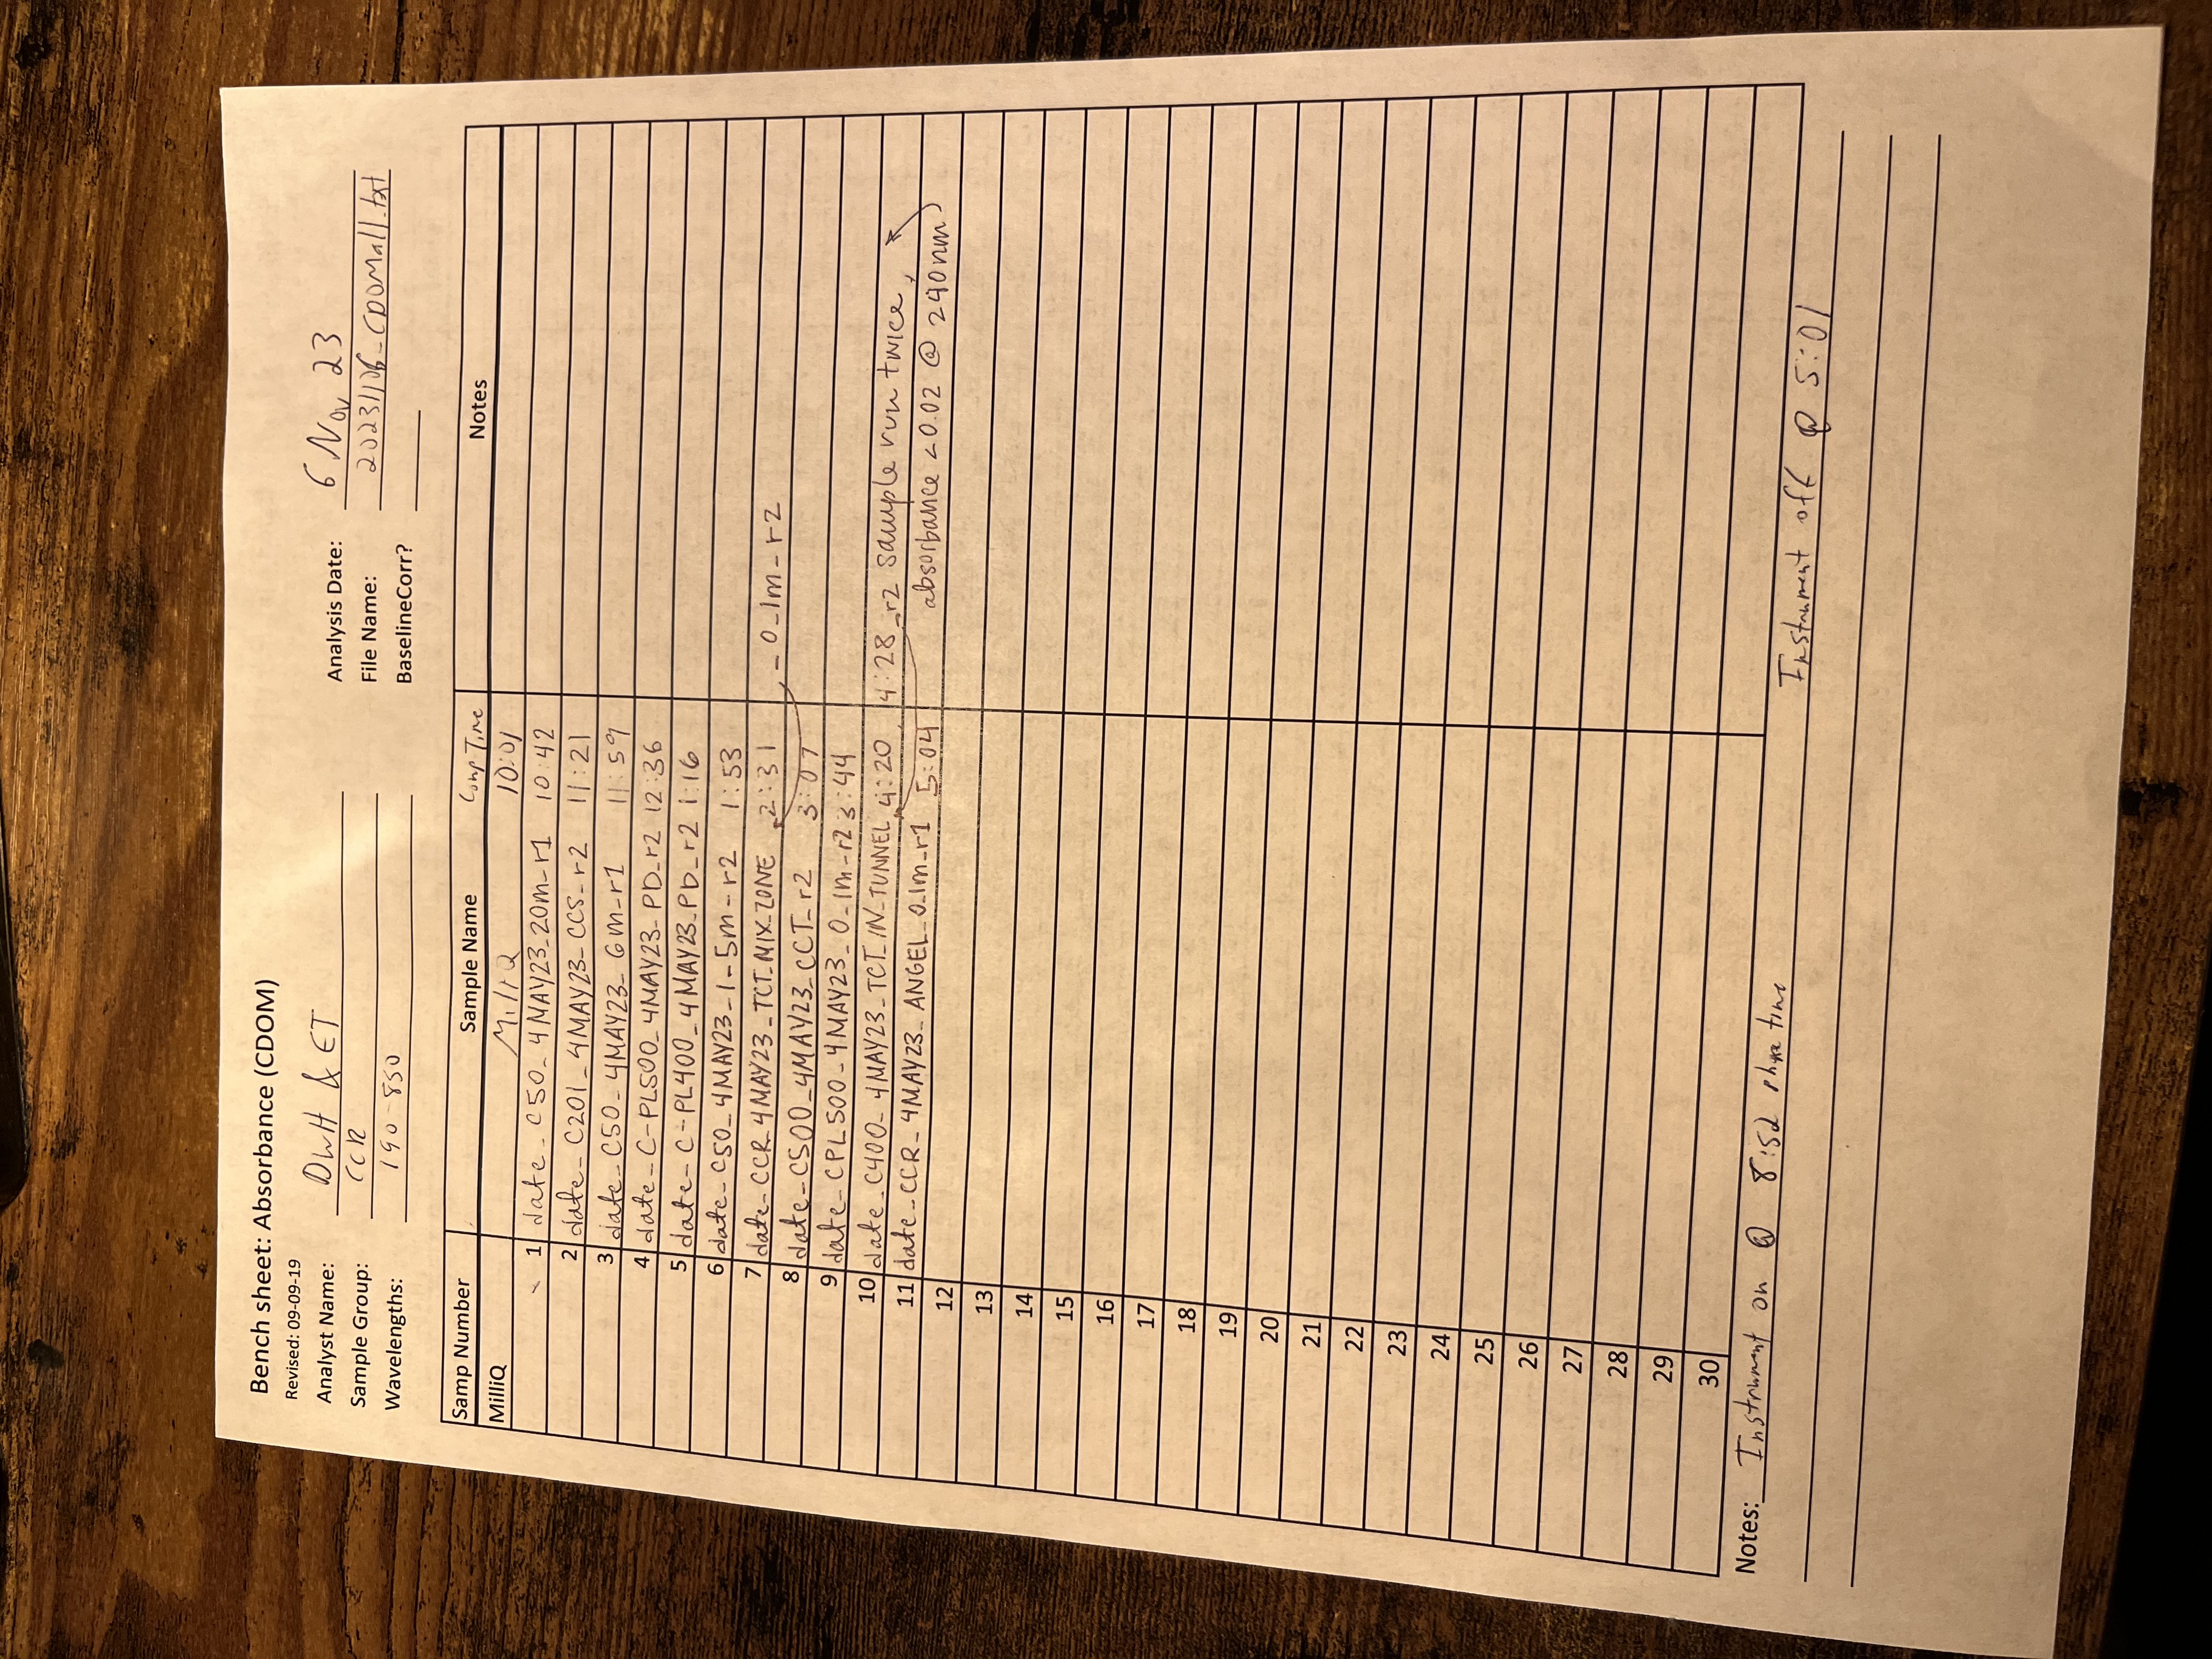 Bench sheet: Absorbance (CDOM)
Revised: 09-09-19
Analyst Name: DWH & ET
Analysis Date: 6 Nov 23
Sample Group: CCR
File Name: 20231106_CDOMall.txt
Wavelengths: 190-850
BaselineCorr?
Samp Number Sample Name Comp Time Notes
MilliQ MilliQ 10:01
1 date_C50_4MAY23_20m_r1 10:42
2 date_C201_4MAY23_CCS_r2 11:21
3 date_C50_4MAY23_6m_r1 11:59
4 date_C-PL500_4MAY23_PD_r2 12:36
5 date_C-PL400_4MAY23_PD_r2 1:16
6 date_C50_4MAY23_1-5m_r2 1:53
7 date_CCR_4MAY23_TCT_MIX_ZONE 2:31 _0_1m_r2
8 date_C500_4MAY23_CCT_r2 3:07
9 date_CPL500_4MAY23_0_1m_r2 3:44
10 date_C400_4MAY23_TCT_IN_TUNNEL 4:20 4:28 _r2 sample run twice,
11 date_CCR_4MAY23_ANGEL_0_1m_r1 5:04 absorbance <0.02 @ 240nm
12
13
14
15
16
17
18
19
20
21
22
23
24
25
26
27
28
29
30
Notes: Instrument on @ 8:52 phone time
Instrument off @ 5:01